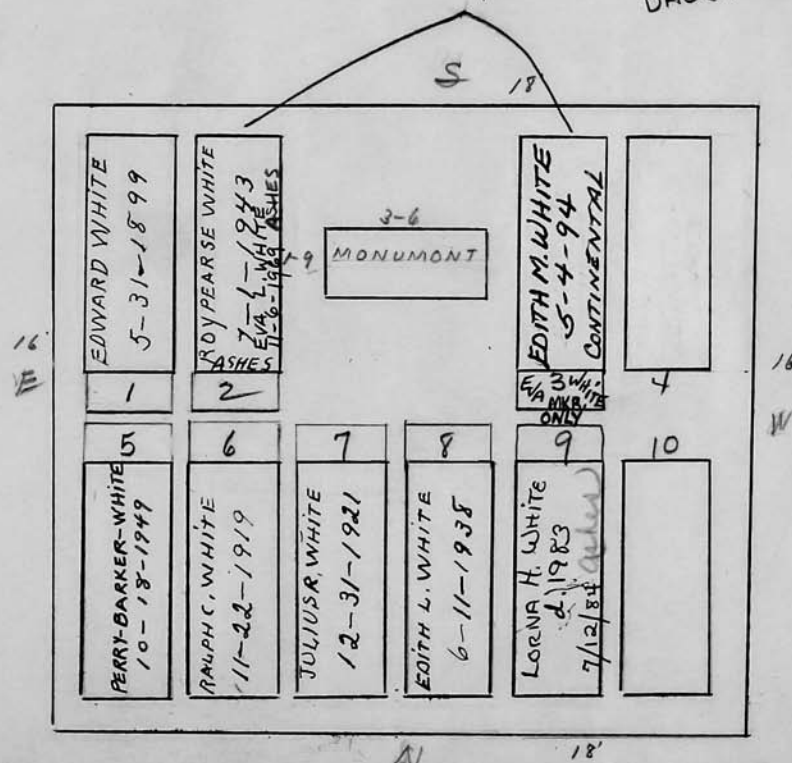 S
18'
EDWARD WHITE
5-31-1899
1
ROY PEARSE WHITE
7-1-1943
EVA L. WHITE
11-6-1969 ASHES
ASHES
2
3-6
1-9
MONUMONT
EDITH M. WHITE
5-4-94
CONTINENTAL
3
EVA WHITE
MKR
ONLY
4
16
E
16
W
5
PERRY-BARKER-WHITE
10-18-1949
6
RALPH C. WHITE
11-22-1919
7
JULIUS R. WHITE
12-31-1921
8
EDITH L. WHITE
6-11-1938
9
LORNA H. WHITE
d. 1983
7/12/84
ashes
10
N
18'